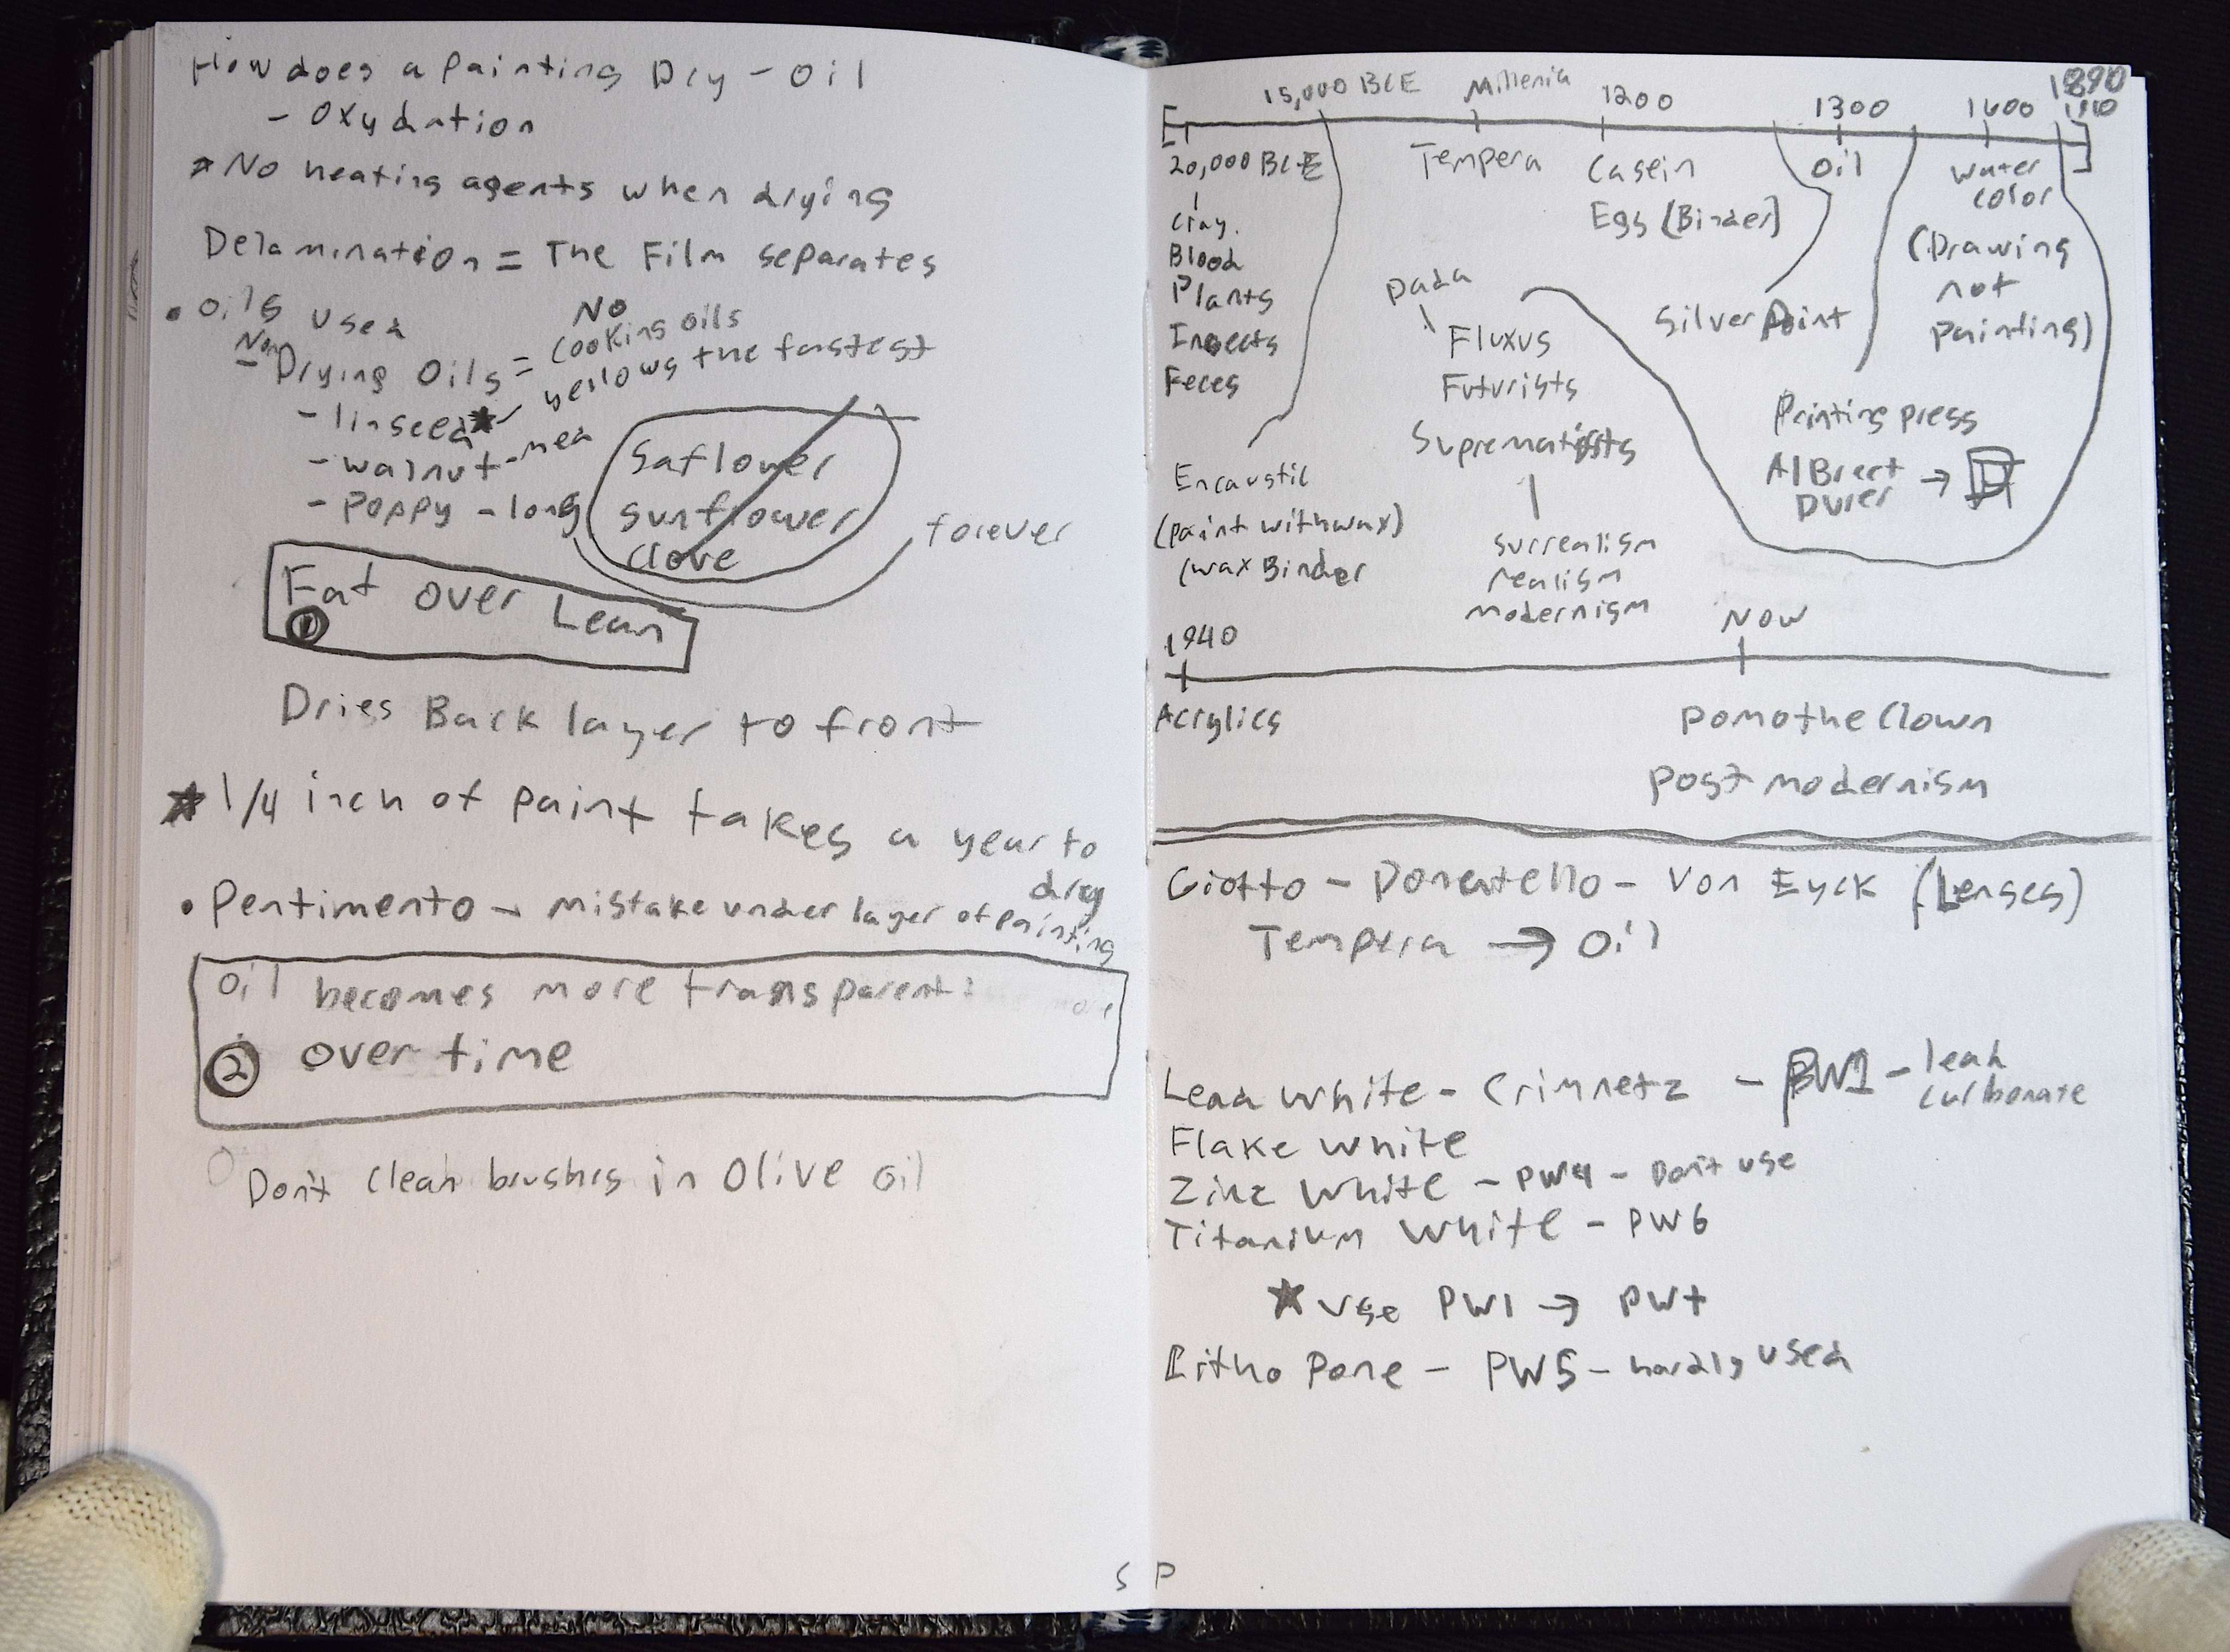 How does a Painting Dry - Oil
- Oxydation
* No heating agents when drying
Delamination = The Film separates
• Oils used
Non
- Drying Oils = NO cooking oils
- linseed ★ - yellows the fastest
- walnut - med
- Poppy - long
Saflower
Sunflower
Clove
forever
Fat over Lean
1
Dries Back layer to front
★ 1/4 inch of paint takes a year to dry
• Pentimento - mistake under layer of painting
Oil becomes more transparent
2 over time
Don't clean brushes in Olive oil
S
15,000 BCE Millenia 1200 1300 1600 1890
1910
20,000 BCE
Clay.
Blood
Plants
Insects
Feces
Tempera
Casein
Egg (Binder)
Oil
Water
color
(Drawing
not
painting)
Dada
Fluxus
Futurists
Suprematists
Surrealism
realism
modernism
Silver Point
Printing press
AlBrect
Durer →
Encaustic
(paint with wax)
(wax Binder
1940
NOW
Acrylics
pomotheclown
post modernism
Giotto - Donatello - Van Eyck (Lenses)
Tempera → Oil
Lead White - Crimnetz - PW1 - lead
carbonate
Flake White
Zinc White - PW4 - Don't use
Titanium White - PW6
★ Use PW1 → PW+
Litho Pone - PW5 - hardly used
P